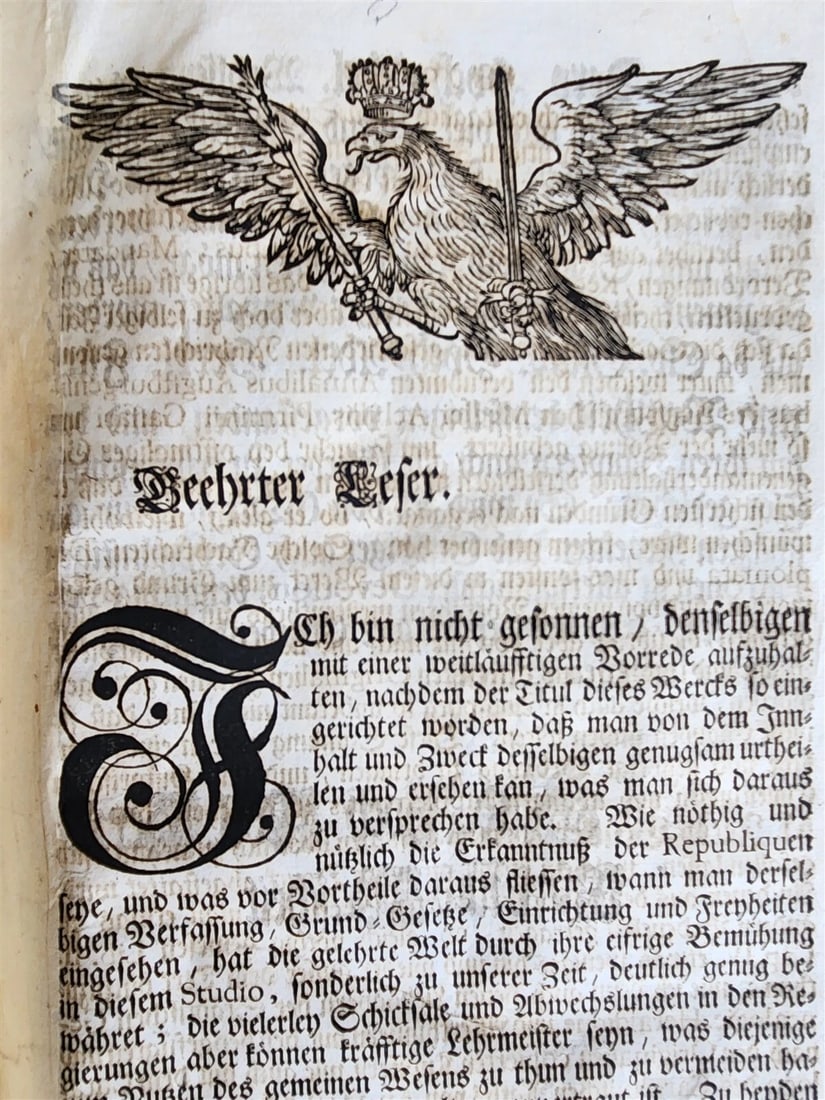 Geehrter Leser.
ICh bin nicht gesonnen / denselbigen
mit einer weitläufftigen Vorrede aufzuhal-
ten, nachdem der Titul dieses Wercks so ein-
gerichtet worden, daß man von dem Inn-
halt und Zweck desselbigen genugsam urthei-
len und ersehen kan, was man sich daraus
zu versprechen habe. Wie nöthig und
nützlich die Erkanntnuß der Republiquen
seye, und was vor Vortheile daraus fliessen, wann man dersel-
bigen Verfassung, Grund-Gesetze, Einrichtung und Freyheiten
eingesehen, hat die gelehrte Welt durch ihre eifrige Bemühung
in diesem Studio, sonderlich zu unserer Zeit, deutlich genug be-
währet; die vielerley Schicksale und Abwechslungen in den Re-
gierungen aber können kräfftige Lehrmeister seyn, was diejenige
Nutzen des gemeinen Wesens zu thun und zu vermeiden ha-
ist. Zu beyden